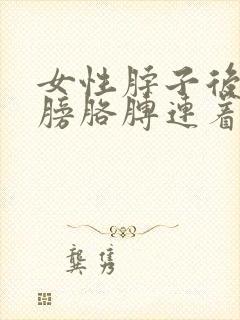 女性脖子後
膀胳膊連着
龔隽